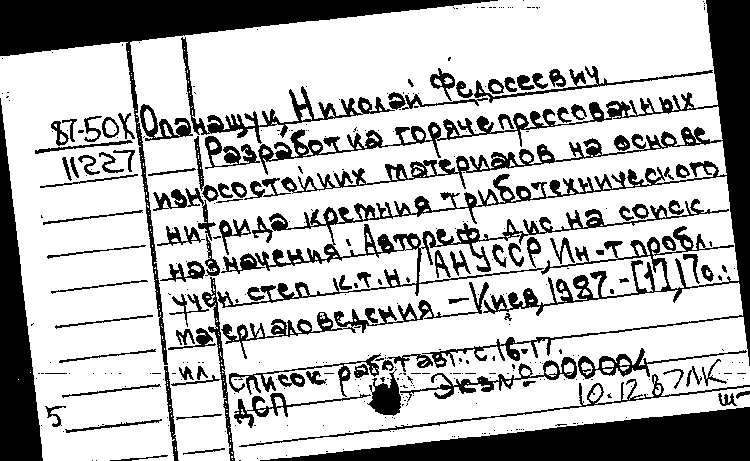 87-50К Опанащук Николай Федосеевич.
11227 Разработка горячепрессованных
износостойких материалов на основе
нитрида кремния триботехнического
назначения: Автореф. дис. на соиск.
учен. степ. к.т.н. / АН УССР, Ин-т пробл.
материаловедения. – Киев, 1987. – [1], 17 с.:
ил.
Список работ авт.: с. 16-17.
ДСП Экз № 000004
5 10.12.87 ЛК